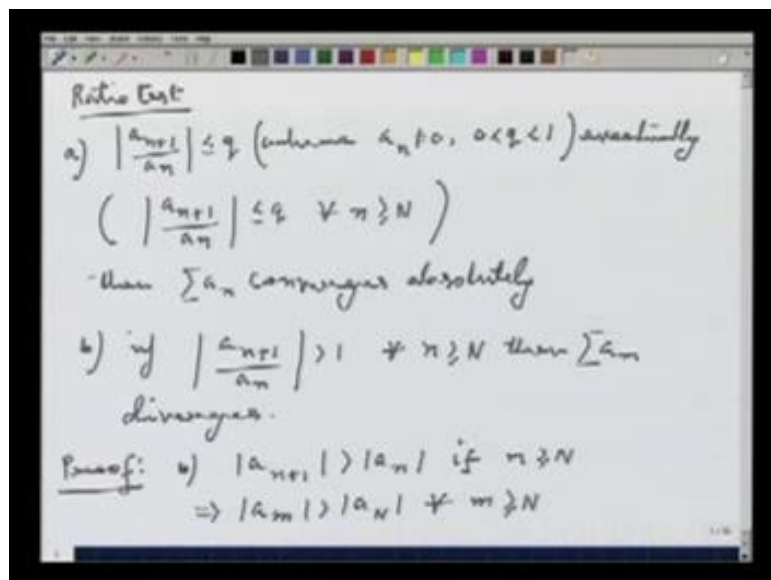 Ratio test
a) |a_{n+1}/a_n| ≤ q (where a_n ≠ 0, 0<q<1) eventually
( |a_{n+1}/a_n| ≤ q ∀ n ≥ N )
then ∑a_n converges absolutely
b) if |a_{n+1}/a_n| > 1 ∀ n ≥ N then ∑a_n
diverges.
Proof: b) |a_{n+1}| > |a_n| if n ≥ N
⇒ |a_m| > |a_N| ∀ m ≥ N